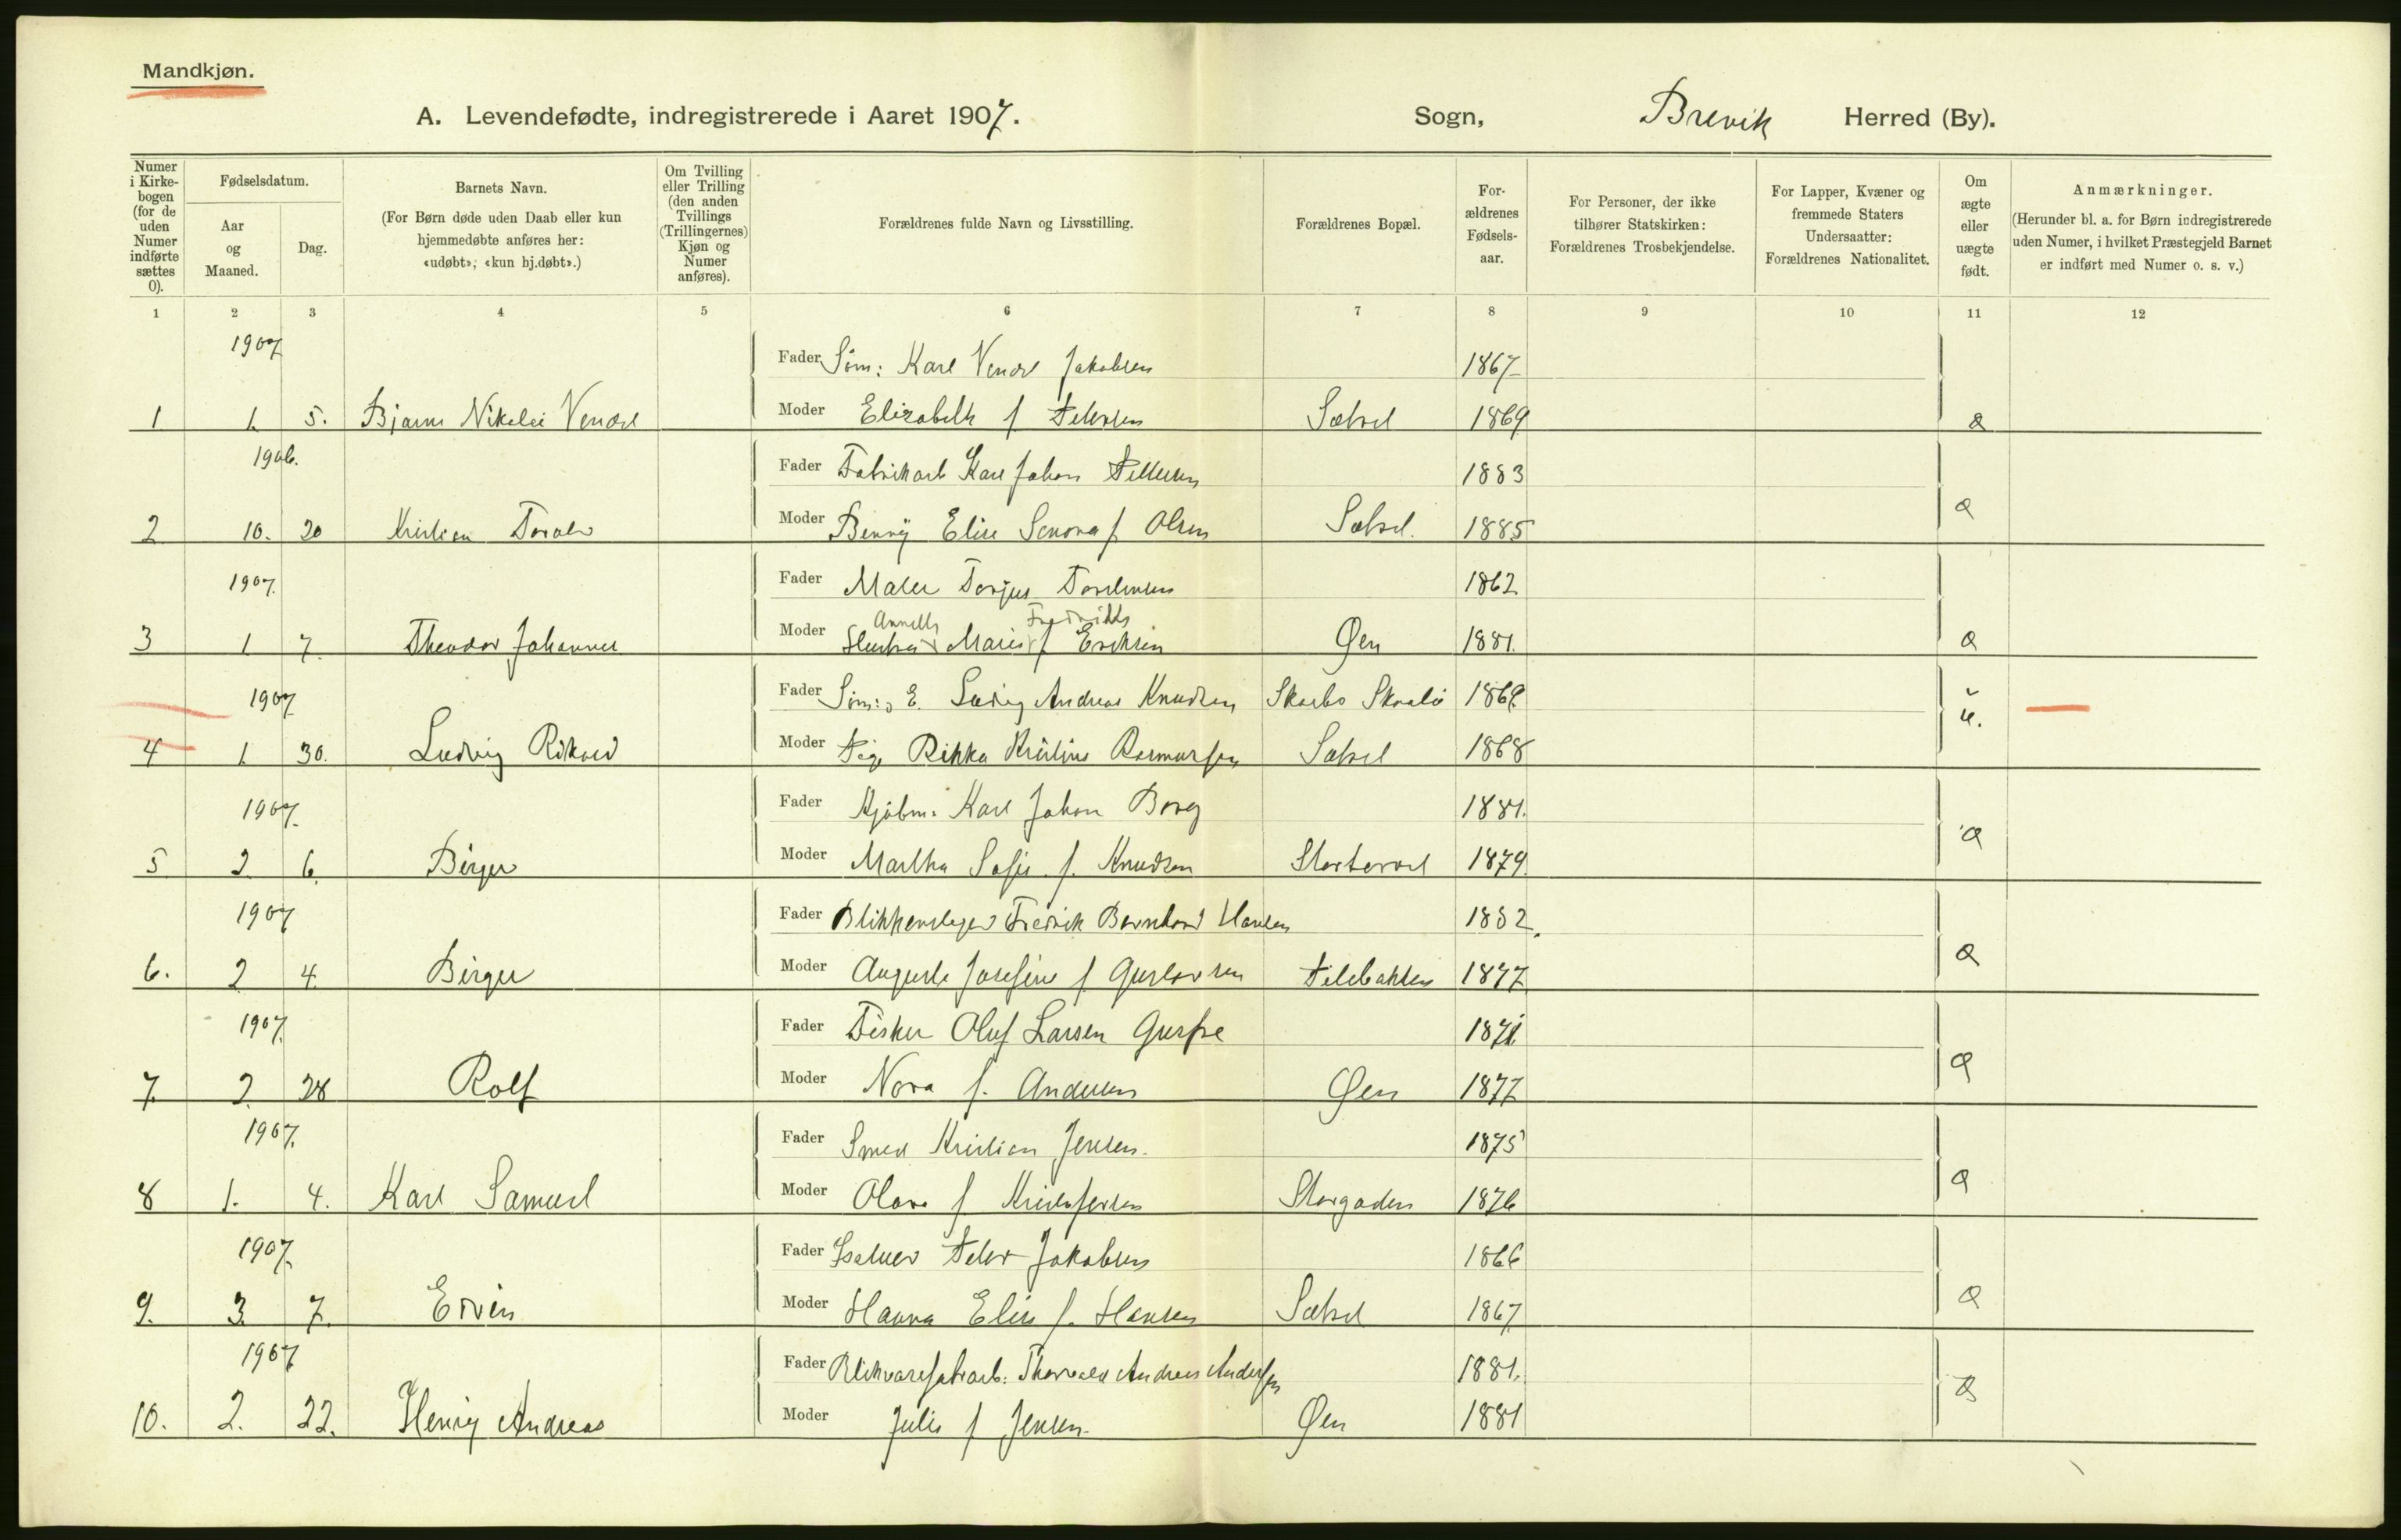 Mandkjøn.
A. Levendefødte, indregistrerede i Aaret 1907. Sogn, Brevik Herred (By).
Numer i Kirkebogen (for de uden Numer indførte sættes 0).
Fødselsdatum.
Aar og Maaned.
Dag.
Barnets Navn.
(For Børn døde uden Daab eller kun hjemmedøbte anføres her: «udøbt»; «kun hj.døbt».)
Om Tvilling eller Trilling (den anden Tvillings (Trillingernes) Kjøn og Numer anføres).
Forældrenes fulde Navn og Livsstilling.
Forældrenes Bopæl.
Forældrenes Fødselsaar.
For Personer, der ikke tilhører Statskirken: Forældrenes Trosbekjendelse.
For Lapper, Kvæner og fremmede Staters Undersaatter: Forældrenes Nationalitet.
Om ægte eller uægte født.
Anmærkninger.
(Herunder bl. a. for Børn indregistrerede uden Numer, i hvilket Præstegjeld Barnet er indført med Numer o. s. v.)
1 2 3 4 5 6 7 8 9 10 11 12
1907 Fader Søm: Karl Jakobsen 1867
1 1. 5. Bjarne Nikolai Moder Elisabeth f Petersen Sætret 1869
1906. Fader Fabrikarb Karl Johan Pettersen 1883
2 10. 20 Kristian Toralv Moder Benny Elise f Olsen Sætret. 1885
1907. Fader Maler Torjus 1862
Fredrikke
3 1 7. Theodor Johannes Moder Marie f Eriksen Øen 1881.
1907 Fader Søm: E. Ludvig Andreas Knudsen 1869
4 1. 30. Ludvig Rikard Moder Pige Rikka Kristine Rasmussen Sætret 1868
1907. Fader Kjøbm: Karl Johan Borg 1881.
5 2 6. Birger Moder Martha Sofie f. Knudsen 1879.
1907 Fader Blikkenslager Fredrik Bernhard Hansen 1882.
6. 2 4. Birger Moder Auguste Josefine f Gustavsen 1877
1907. Fader Fisker Oluf Larsen 1871
7. 2. 28 Rolf Moder Nora f. Andersen Øen 1877
1907. Fader Smed Kristian Jensen. 1875
8 1. 4. Karl Samuel Moder Olava f Kristofersen Storgaden 1876
1907. Fader Peter Jakobsen 1866
9. 3. 7. Ervin Moder Hanna Elise f. Hansen Sætret 1867
1907 Fader Blikvarefabrarb: Thorvald Andreas Andersen 1881.
10. 2. 22. Henry Andreas Moder Julie f Jensen. Øen 1881